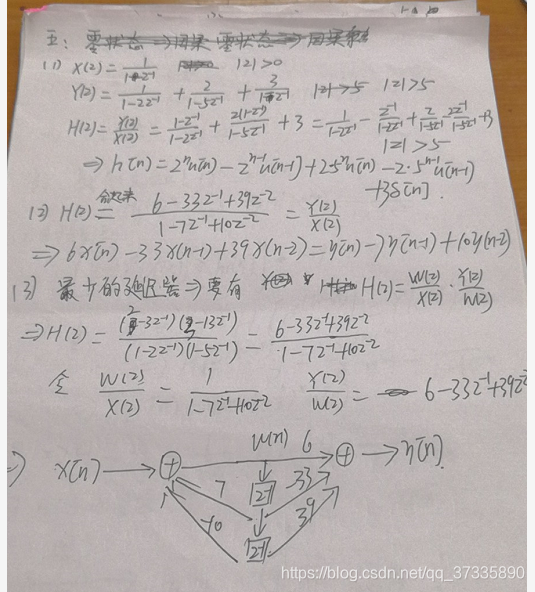 五: 零状态⇒因果 零状态⇒因果
(1) X(z)= 1/(1-z⁻¹) |z|>0
Y(z)= 1/(1-2z⁻¹) + 2/(1-5z⁻¹) + 3/(1-z⁻¹) |z|>5 |z|>5
H(z)= Y(z)/X(z) = (1-z⁻¹)/(1-2z⁻¹) + 2(1-z⁻¹)/(1-5z⁻¹) + 3 = 1/(1-2z⁻¹) - z⁻¹/(1-2z⁻¹) + 2/(1-5z⁻¹) - 2z⁻¹/(1-5z⁻¹) + 3
|z|>5
⇒ h[n]= 2ⁿu[n] - 2ⁿ⁻¹u[n-1] + 2·5ⁿu[n] - 2·5ⁿ⁻¹u[n-1]
+3δ[n].
(2) H(z)= (6-33z⁻¹+39z⁻²)/(1-7z⁻¹+10z⁻²) = Y(z)/X(z)
⇒ 6x[n] - 33x(n-1) + 39x(n-2) = y[n] - 7y(n-1) + 10y(n-2)
(3) 最少的延迟器⇒要有 H(z)= W(z)/X(z) · Y(z)/W(z)
⇒H(z)= (-3z⁻¹)(-13z⁻¹)/((1-2z⁻¹)(1-5z⁻¹)) = (6-33z⁻¹+39z⁻²)/(1-7z⁻¹+10z⁻²)
令 W(z)/X(z) = 1/(1-7z⁻¹+10z⁻²) Y(z)/W(z) = 6-33z⁻¹+39z⁻²
⇒ x[n] → ⊕ W(n) 6 ⊕ → y[n].
7 z⁻¹ -33
-10 z⁻¹ 39
https://blog.csdn.net/qq_37335890